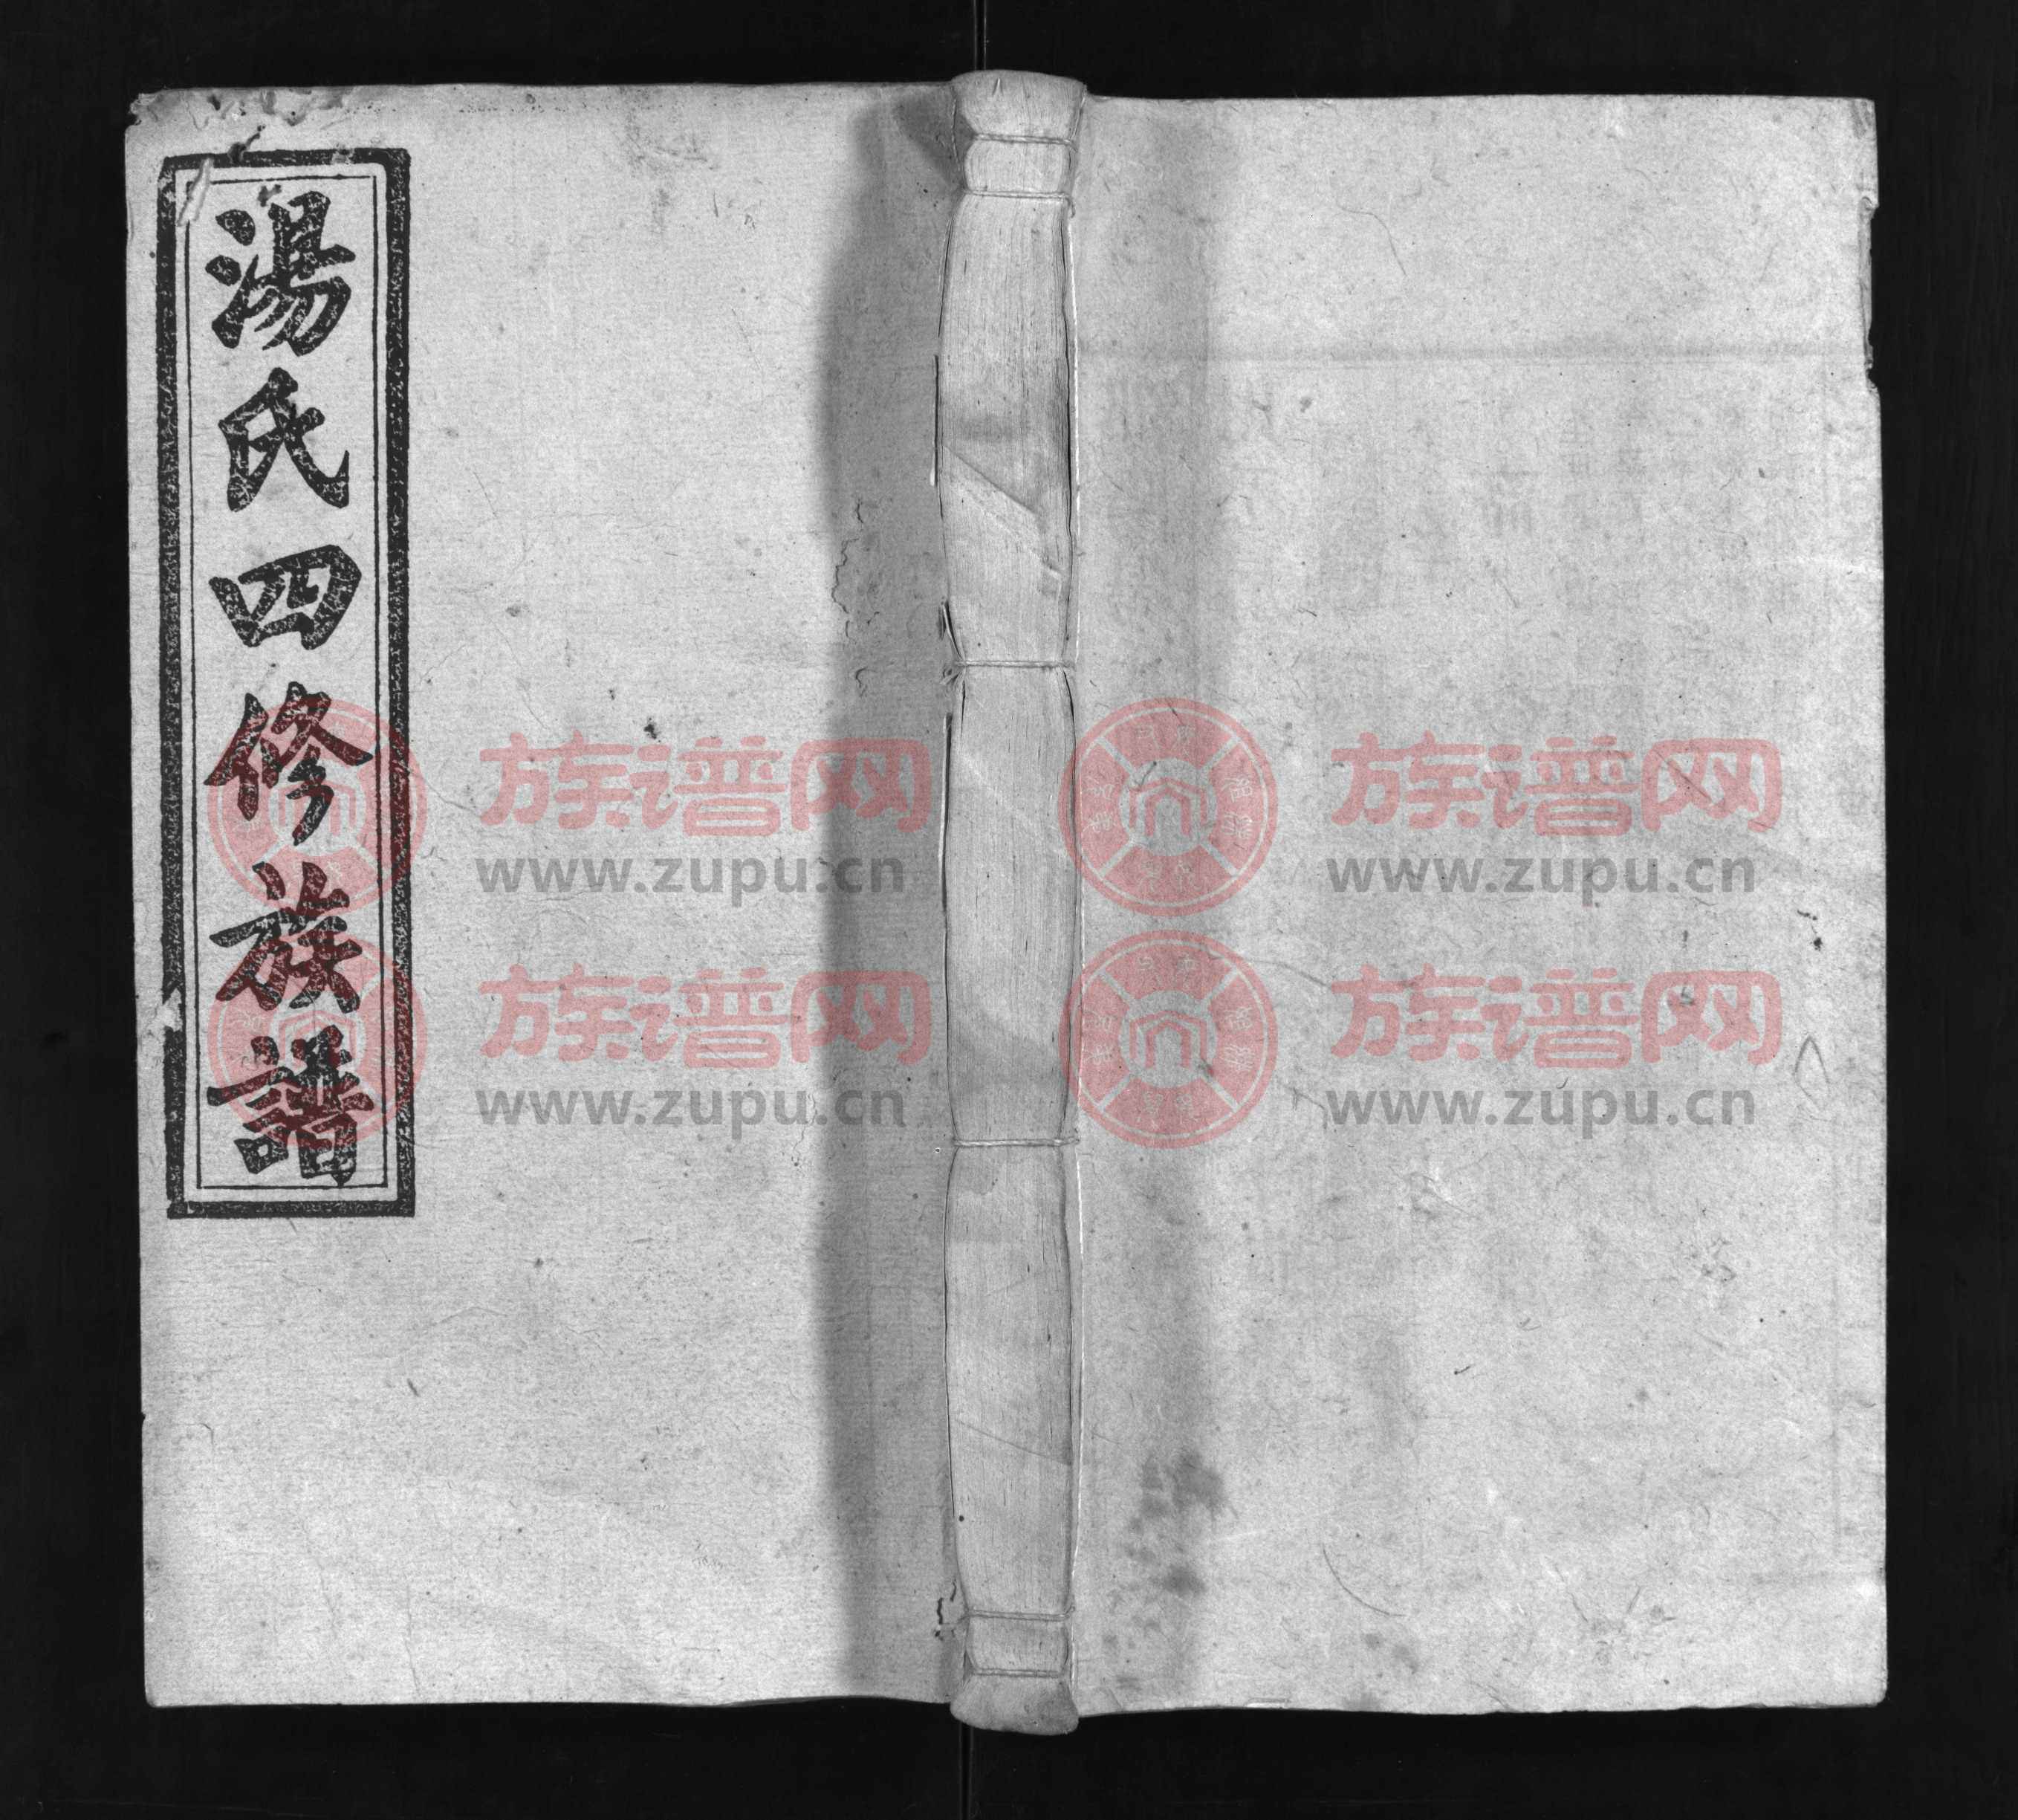 湯氏四修族譜
族谱网 族谱网
www.zupu.cn www.zupu.cn
族谱网 族谱网
www.zupu.cn www.zupu.cn